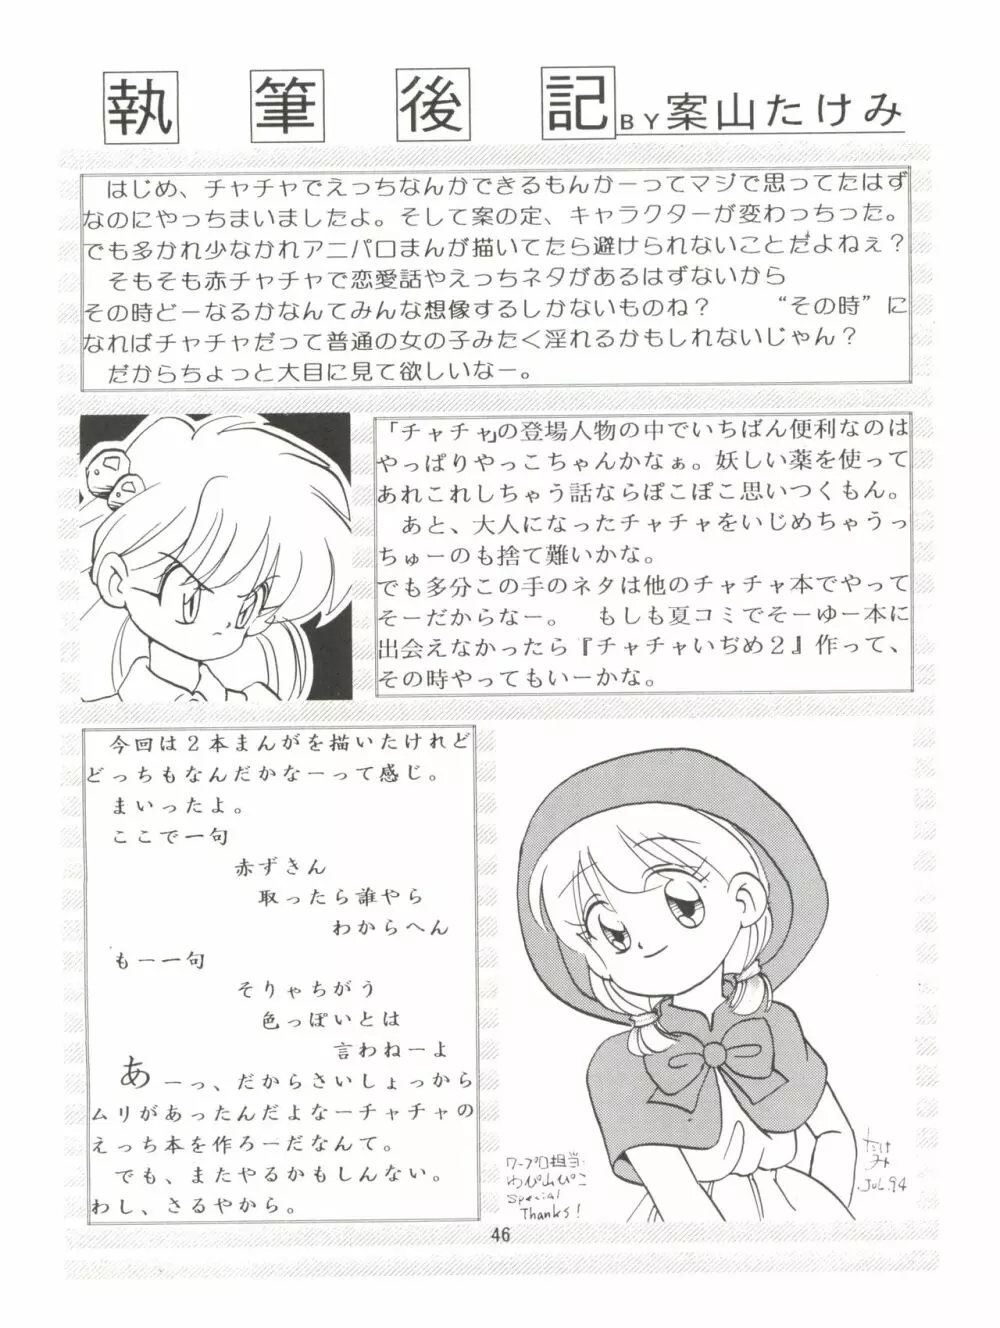 執筆後記 BY 案山たけみ
はじめ、チャチャでえっちなんかできるもんかーってマジで思ってたはず
なのにやっちまいましたよ。そして案の定、キャラクターが変わっちった。
でも多かれ少なかれアニパロまんが描いてたら避けられないことだよねぇ？
そもそも赤チャチャで恋愛話やえっちネタがあるはずないから
その時どーなるかなんてみんな想像するしかないものね？　“その時”に
なればチャチャだって普通の女の子みたく淫れるかもしれないじゃん？
だからちょっと大目に見て欲しいなー。
「チャチャ」の登場人物の中でいちばん便利なのは
やっぱりやっこちゃんかなぁ。妖しい薬を使って
あれこれしちゃう話ならぽこぽこ思いつくもん。
あと、大人になったチャチャをいじめちゃうっ
ちゅーのも捨て難いかな。
でも多分この手のネタは他のチャチャ本でやって
そーだからなー。　もしも夏コミでそーゆー本に
出会えなかったら『チャチャいぢめ２』作って、
その時やってもいーかな。
今回は２本まんがを描いたけれど
どっちもなんだかなーって感じ。
まいったよ。
ここで一句
赤ずきん
取ったら誰やら
わからへん
もー一句
そりゃちがう
色っぽいとは
言わねーよ
あーっ、だからさいしょっから
ムリがあったんだよなーチャチャの
えっち本を作ろーだなんて。
でも、またやるかもしんない。
わし、さるやから。
ワープロ担当
わぴ山ぴこ
Special
Thanks!
たけ
み
JUL.94
46